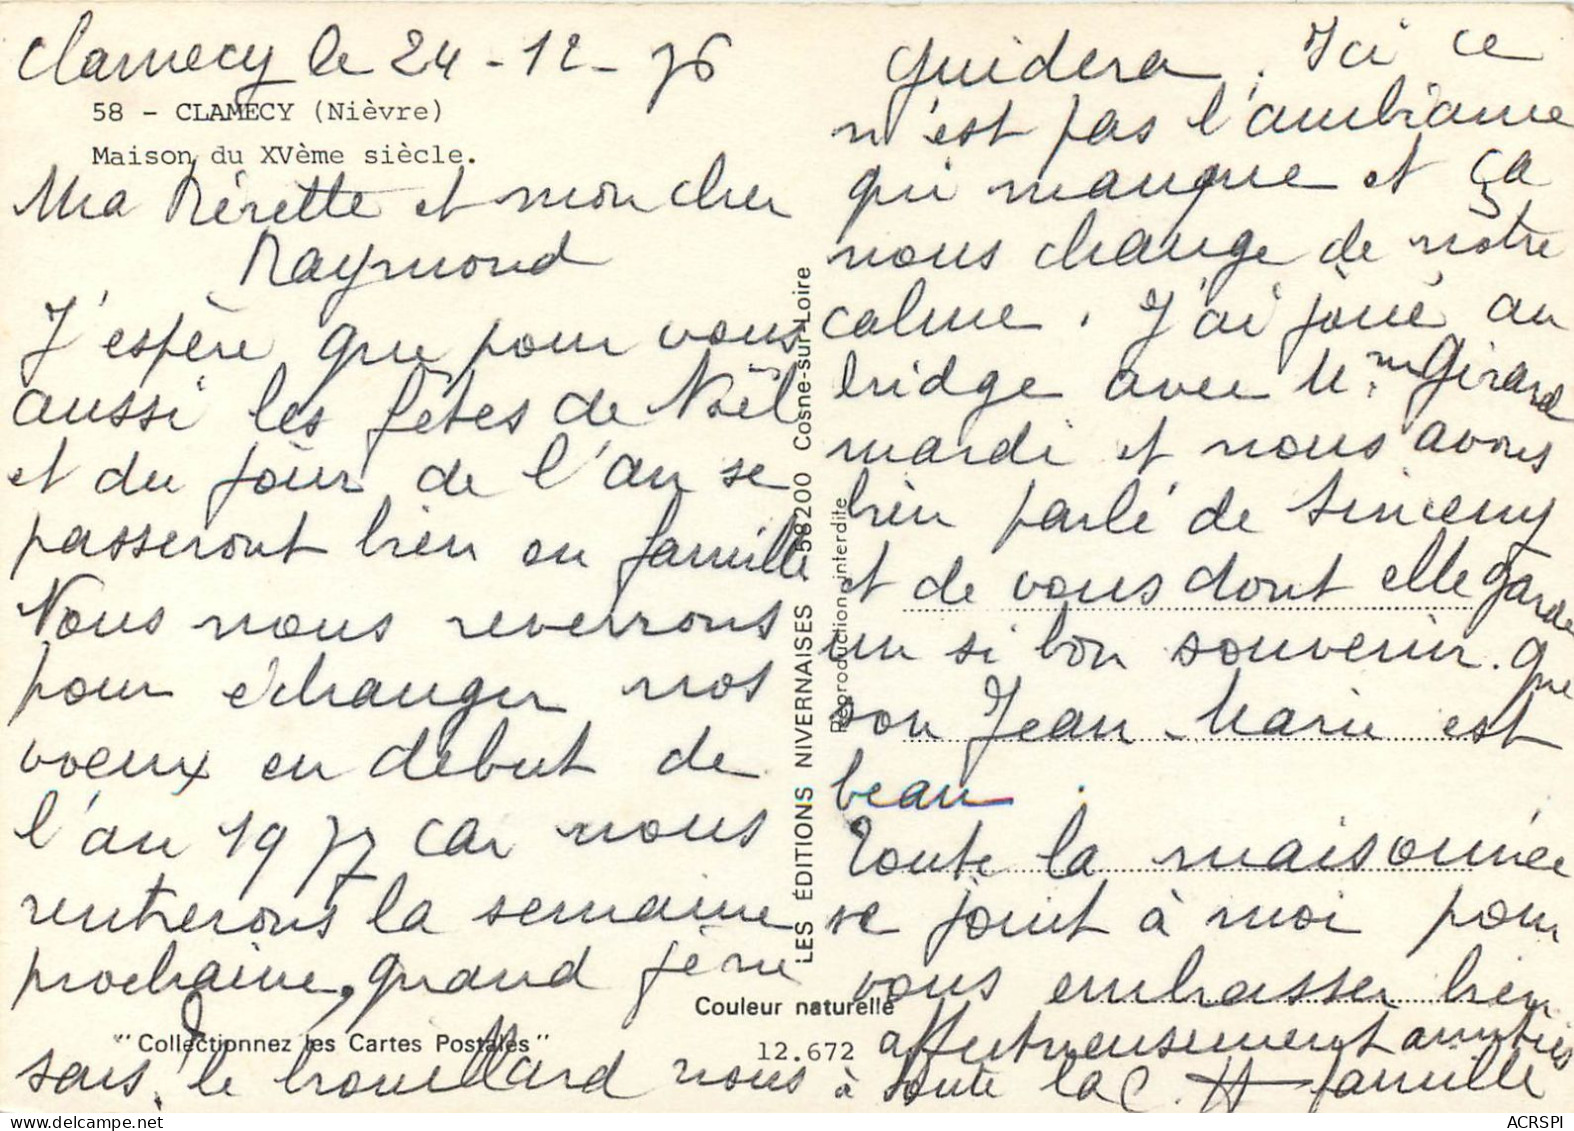 Clamecy le 24-12-76
58 - CLAMECY (Nièvre)
Maison du XVème siècle.
Ma Nénette et mon cher
Raymond
J'espère que pour vous
aussi les fêtes de Noël
et du jour de l'an se
passeront bien en famille
Nous nous reverrons
pour échanger nos
voeux en début de
l'an 1977 car nous
rentrerons la semaine
prochaine, quand je ne
sais, le brouillard nous
"Collectionnez les Cartes Postales"
LES ÉDITIONS NIVERNAISES 58200 Cosne-sur-Loire
Reproduction interdite
Couleur naturelle
12.672
guidera. Ici ce
n'est pas l'ambiance
qui manque et ça
nous change de notre
calme. J'ai joué au
bridge avec Mm Girard
mardi et nous avons
bien parlé de Sinceny
et de vous dont elle garde
un si bon souvenir. Que
son Jean-Marie est
beau.
Toute la maisonnée
se joint à moi pour
vous embrasser bien
affectueusement amitiés
à toute la famille
ACRSPI